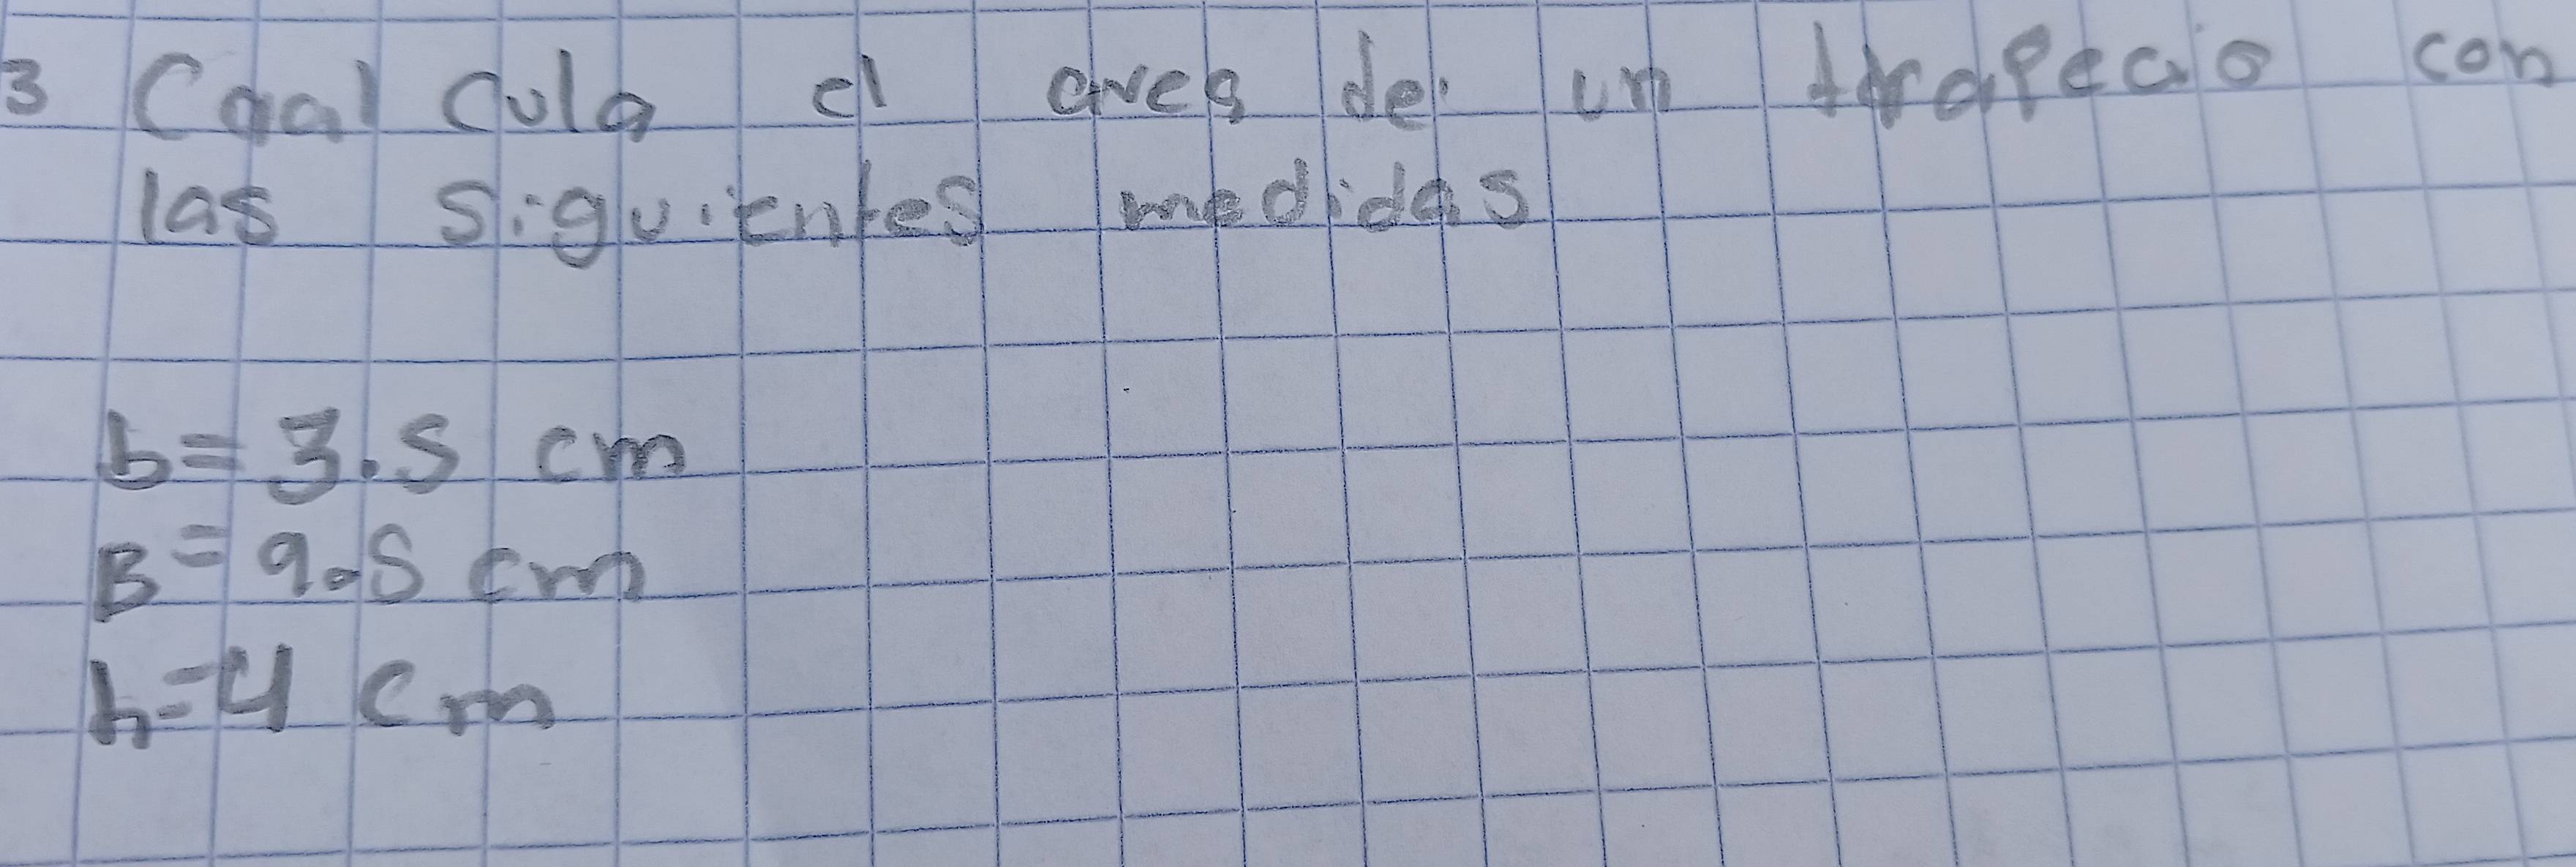 3 Caal cula el area de un trapecio con
las siguientes medidas
b= 3.5 cm
B= 9.5 cm
h=4 cm